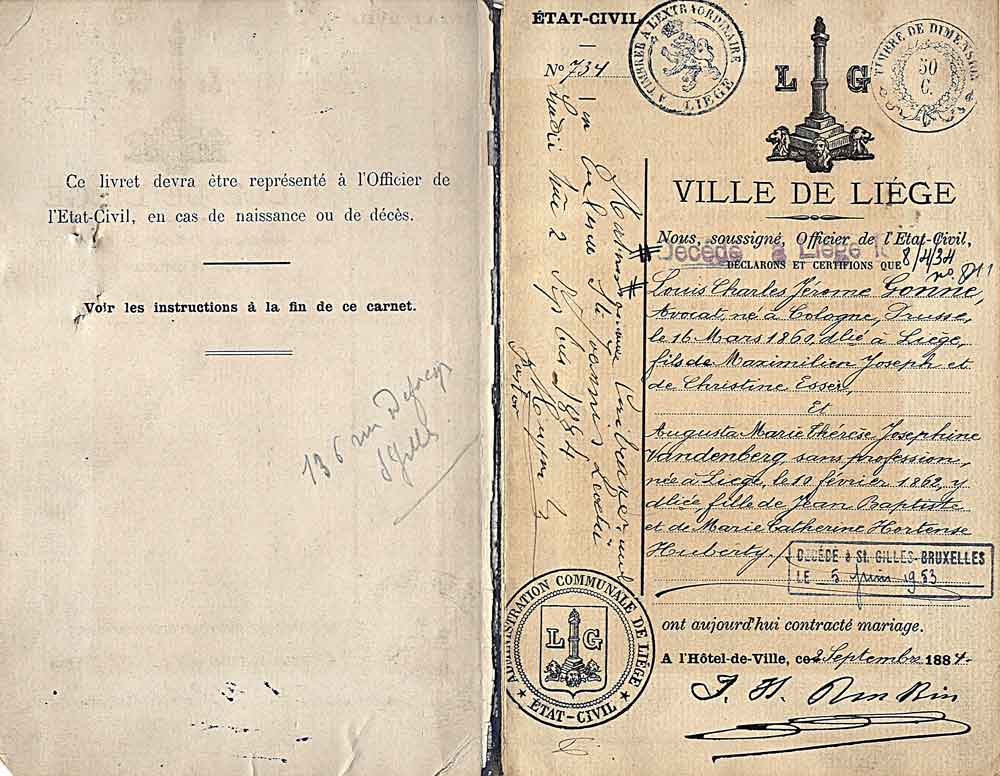 Ce livret devra être représenté à l'Officier de
l'Etat-Civil, en cas de naissance ou de décès.
Voir les instructions à la fin de ce carnet.
136 rue
S Gilles
ÉTAT-CIVIL
No 734
TIMBRE A L'EXTRAORDINAIRE
LIÉGE
L G
TIMBRE DE DIMENSION
50
C.
VILLE DE LIÉGE
Nous, soussigné, Officier de l'Etat-Civil,
Décédé à Liège
DÉCLARONS ET CERTIFIONS QUE
8/4/34
no 811
Louis Charles Jérome Gonne,
Avocat, né à Cologne, Prusse,
le 16 Mars 1860, dlié à Liège,
fils de Maximilien Joseph et
de Christine Esser,
Et
Augusta Marie Thérèse Josephine
Vandenberg, sans profession,
née à Liége, le 10 février 1862, y
dliée, fille de Jean Baptiste
et de Marie Catherine Hortense
Huberty.
DÉCÉDÉ à St. GILLES-BRUXELLES
LE 5 Juin 1953
ont aujourd'hui contracté mariage.
A l'Hôtel-de-Ville, ce 2 Septembre 1884.
Matrimonium
in
hac die 2 7bris 1884
Pastor
ADMINISTRATION COMMUNALE DE LIÉGE
L G
ÉTAT-CIVIL